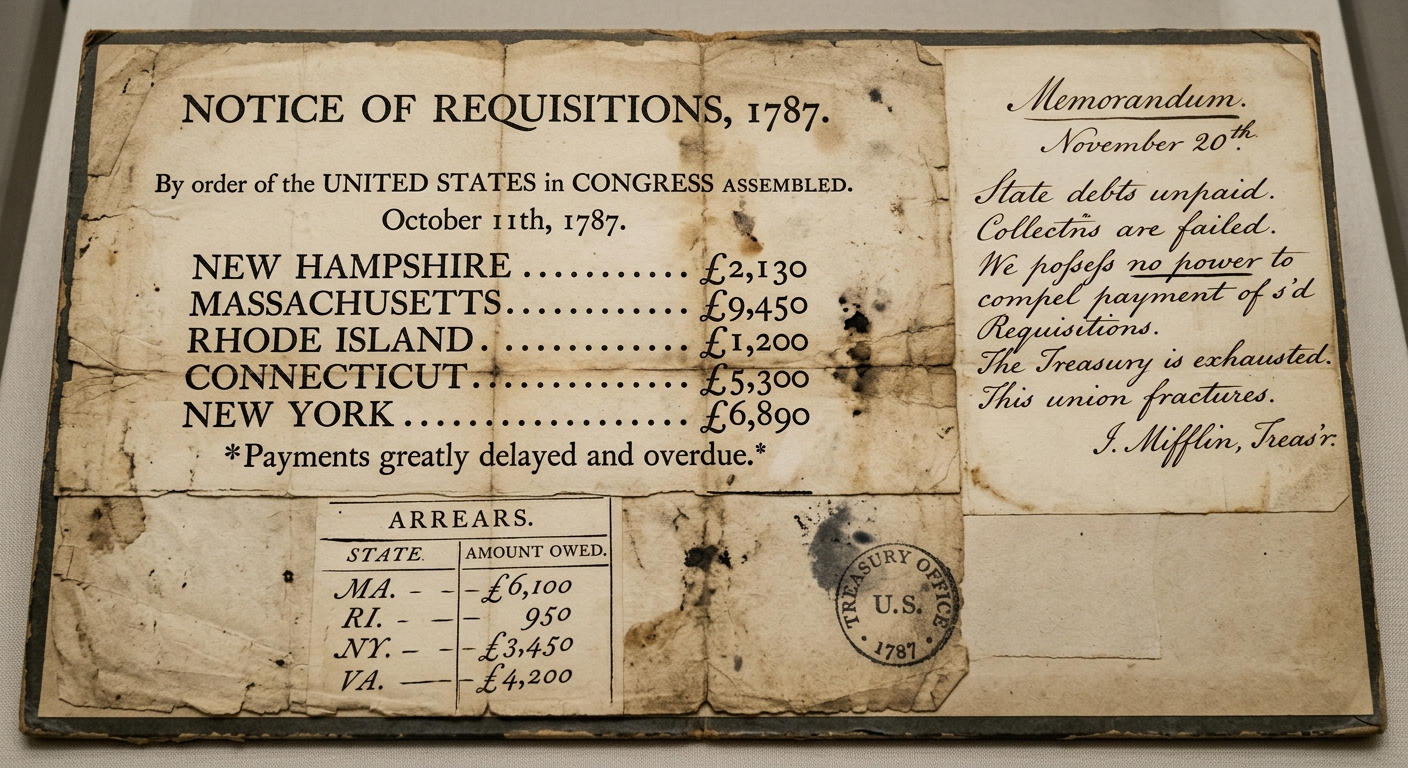 NOTICE OF REQUISITIONS, 1787.
By order of the UNITED STATES in CONGRESS ASSEMBLED.
October 11th, 1787.
NEW HAMPSHIRE ........... £2,130
MASSACHUSETTS............ £9,450
RHODE ISLAND............. £1,200
CONNECTICUT.............. £5,300
NEW YORK .................. £6,890
*Payments greatly delayed and overdue.*
ARREARS.
STATE. AMOUNT OWED.
MA. - - -£6,100
RI. - - - 950
NY. - - -£3,450
VA. —— -£4,200
TREASURY OFFICE
U.S.
· 1787 ·
Memorandum.
November 20th.
State debts unpaid.
Collectn̈s are failed.
We poſseſs no power to
compel payment of s'd
Requisitions.
The Treasury is exhausted.
This union fractures.
J. Mifflin, Treas'r.